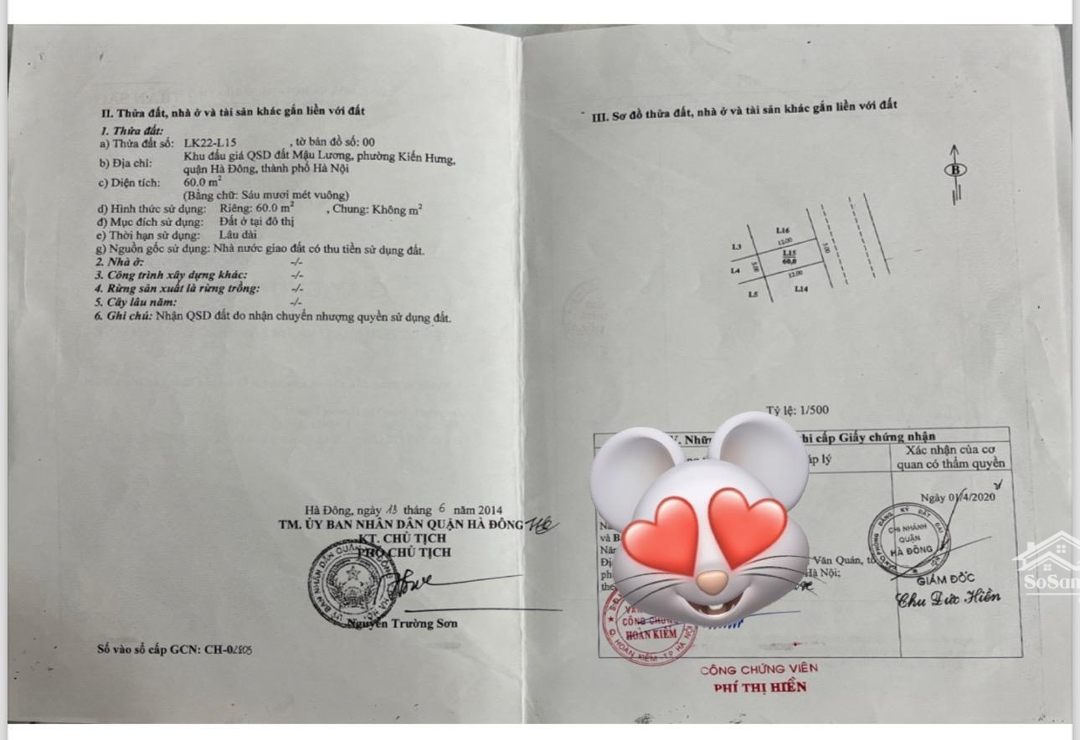 II. Thửa đất, nhà ở và tài sản khác gắn liền với đất
1. Thửa đất:
a) Thửa đất số: LK22-L15 , tờ bản đồ số: 00
b) Địa chỉ: Khu đấu giá QSD đất Mậu Lương, phường Kiến Hưng,
quận Hà Đông, thành phố Hà Nội
c) Diện tích: 60.0 m²
(Bằng chữ: Sáu mươi mét vuông)
d) Hình thức sử dụng: Riêng: 60.0 m² , Chung: Không m²
đ) Mục đích sử dụng: Đất ở tại đô thị
e) Thời hạn sử dụng: Lâu dài
g) Nguồn gốc sử dụng: Nhà nước giao đất có thu tiền sử dụng đất.
2. Nhà ở: -/-
3. Công trình xây dựng khác: -/-
4. Rừng sản xuất là rừng trồng: -/-
5. Cây lâu năm: -/-
6. Ghi chú: Nhận QSD đất do nhận chuyển nhượng quyền sử dụng đất.
Hà Đông, ngày 13 tháng 6 năm 2014
TM. ỦY BAN NHÂN DÂN QUẬN HÀ ĐÔNG
KT. CHỦ TỊCH
PHÓ CHỦ TỊCH
Nguyễn Trường Sơn
Số vào sổ cấp GCN: CH-0
III. Sơ đồ thửa đất, nhà ở và tài sản khác gắn liền với đất
B
L16
L3
12.00
L15
60,0
5.00
5.00
L4
12.00
L5
L14
Tỷ lệ: 1/500
cấp Giấy chứng nhận
lý
Xác nhận của cơ
quan có thẩm quyền
Ngày 01/4/2020
CHI NHÁNH
QUẬN
HÀ ĐÔNG
Văn Quán,
Hà Nội;
GIÁM ĐỐC
Chu Đức Hiền
CÔNG CHỨNG
HOÀN KIẾM
CÔNG CHỨNG VIÊN
PHÍ THỊ HIỀN
SoSan